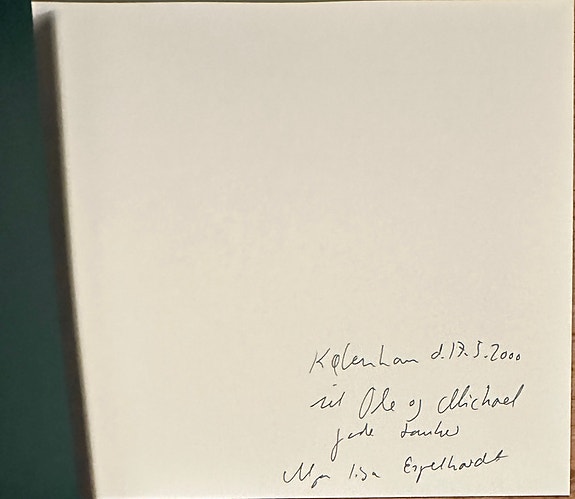 København d. 17.5.2000
til Ole og Michael
gode tanker
Lisa Engelhardt